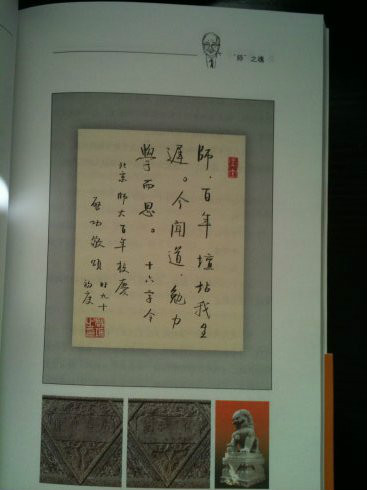 “师”之魂
師。百年壇坫我生
遲。今聞道。勉力
學而思。十六字令
北京師大百年校慶
啓功敬頌 时九十
初度